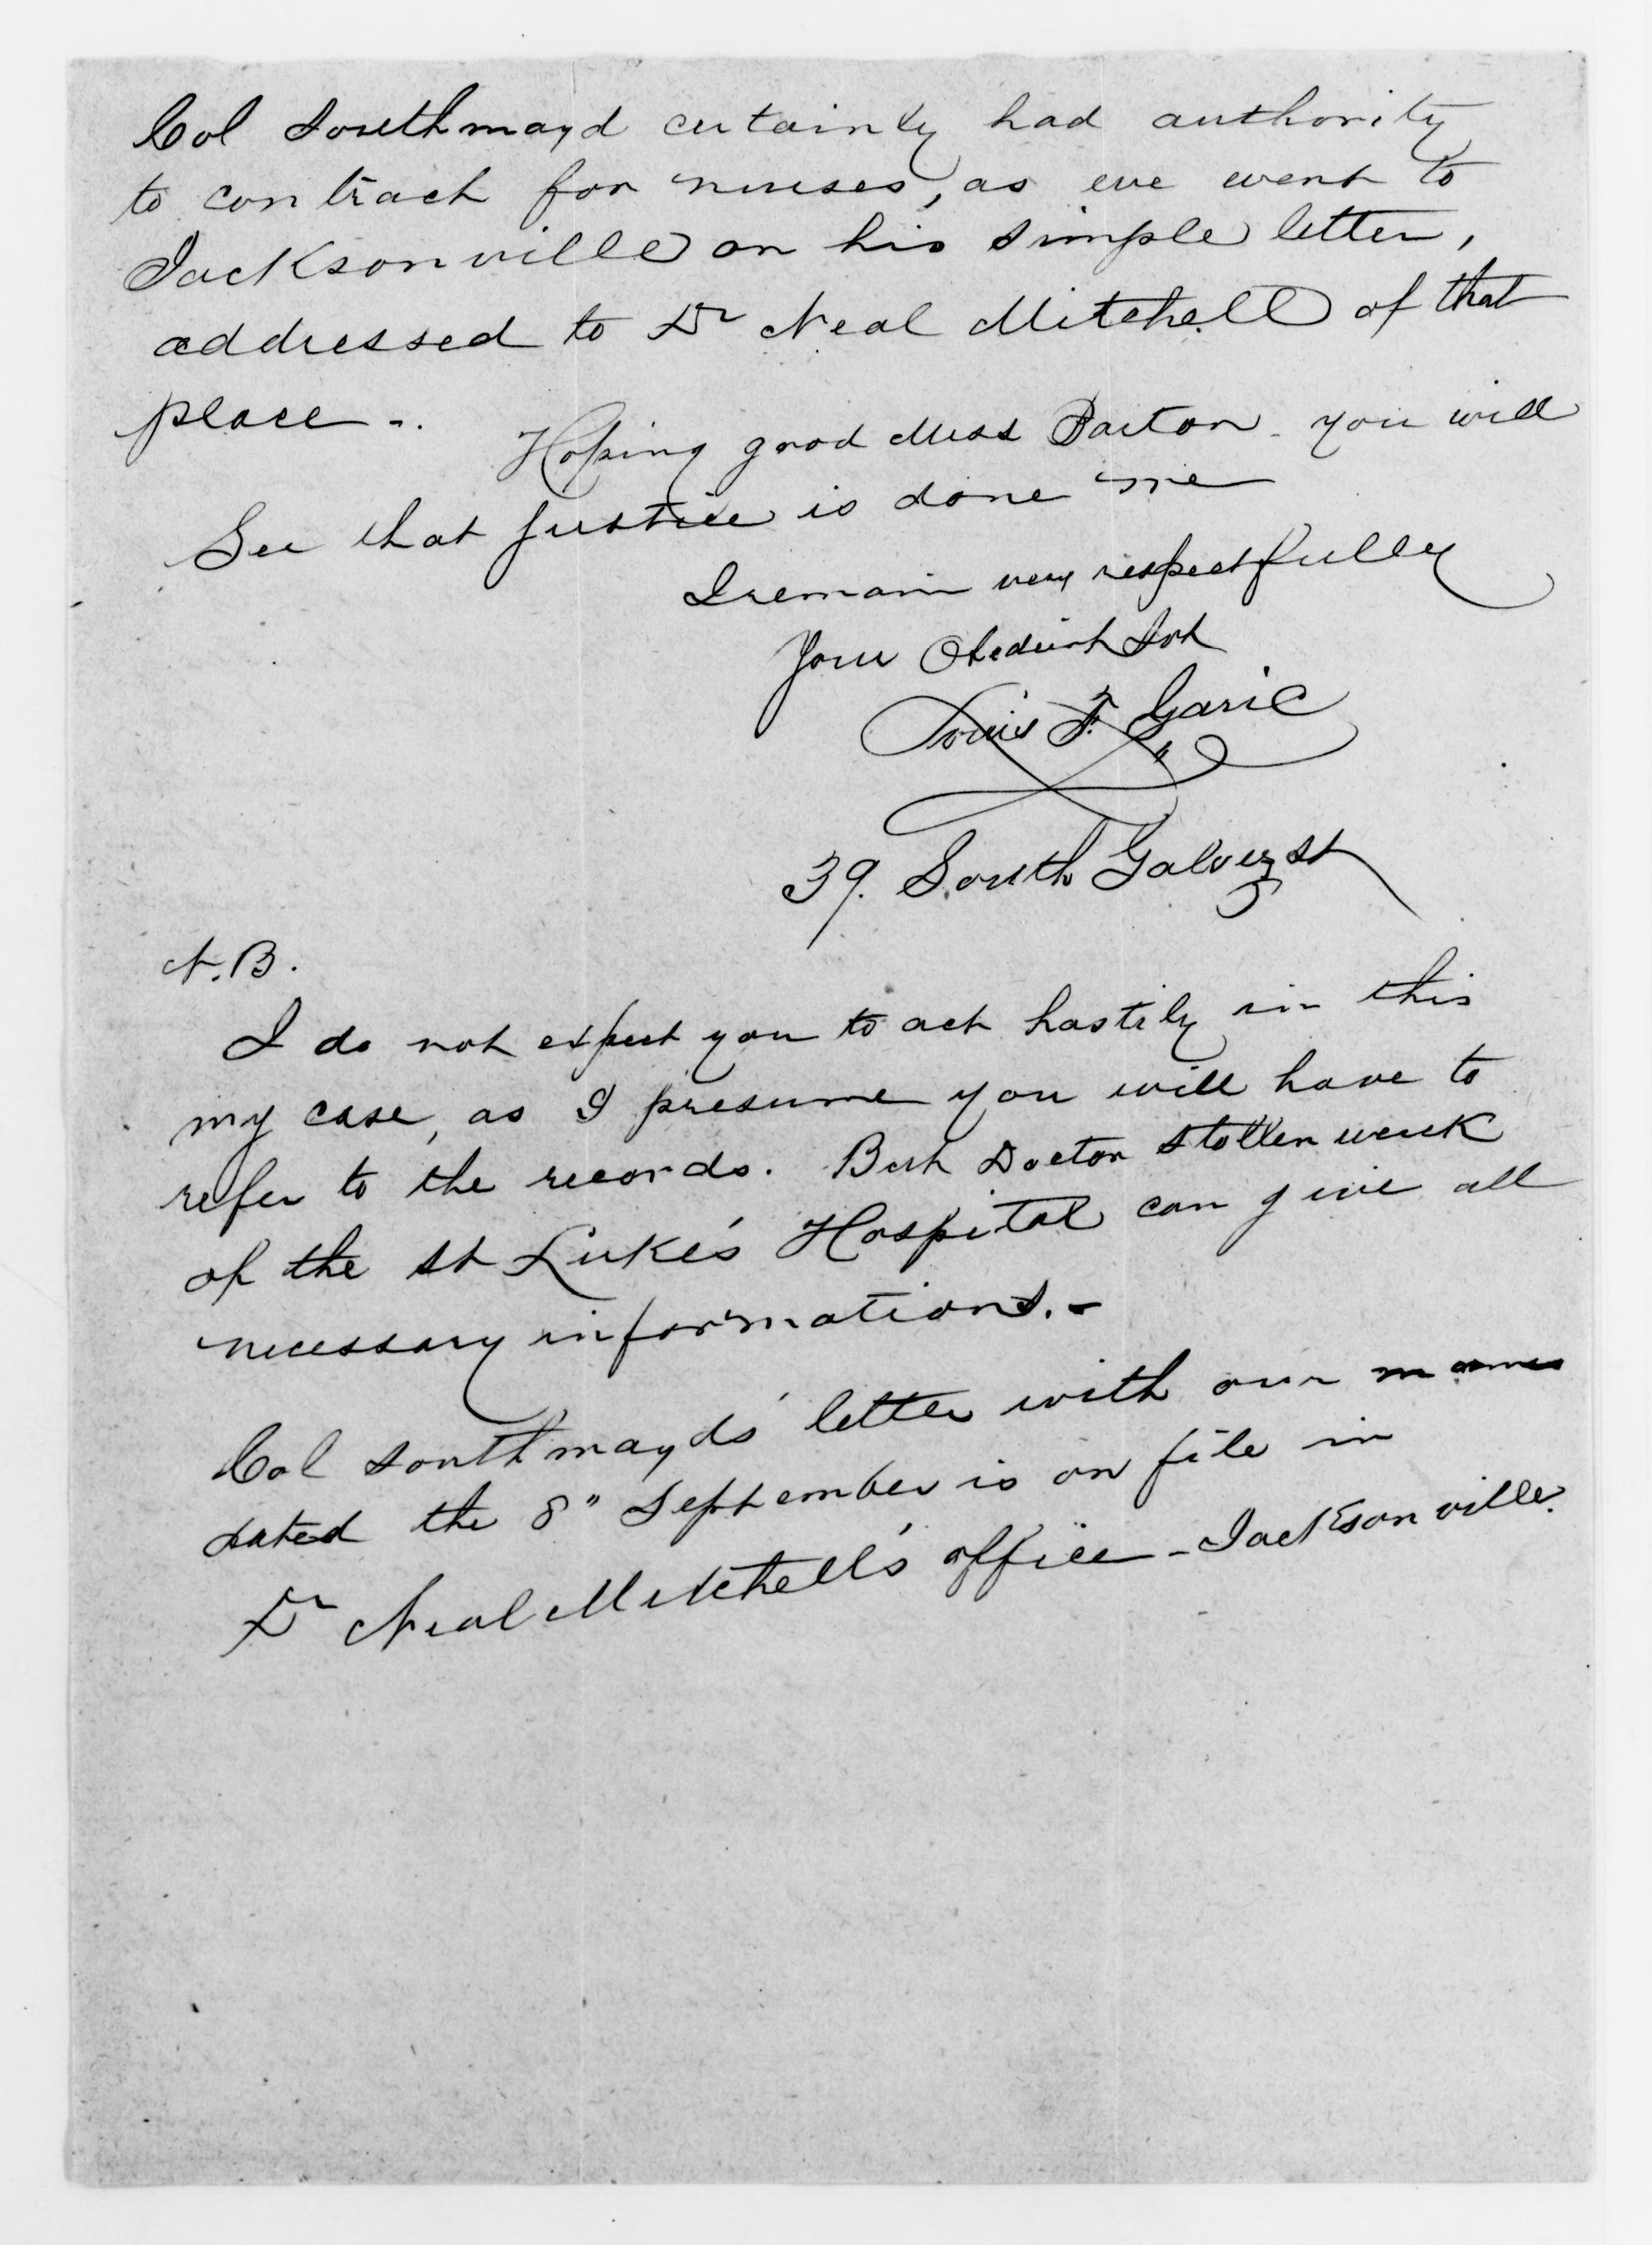 Col Southmayd certainly had authority
to contract for nurses, as we went to
Jacksonville on his simple letter,
addressed to Dr Neal Mitchell of that
place -.
Hoping good Miss Barton - you will
See that justice is done me
I remain very respectfully
Your Obedient Svt
Louis F. Garic
39. South Galvez St
N.B.
I do not expect you to act hastily in this
my case, as I presume you will have to
refer to the records. But Doctor Stollenwerck
of the St Luke's Hospital can give all
necessary informations. -
Col Southmayds' letter with our names
dated the 8" September is on file in
Dr Neal Mitchell's office - Jacksonville.